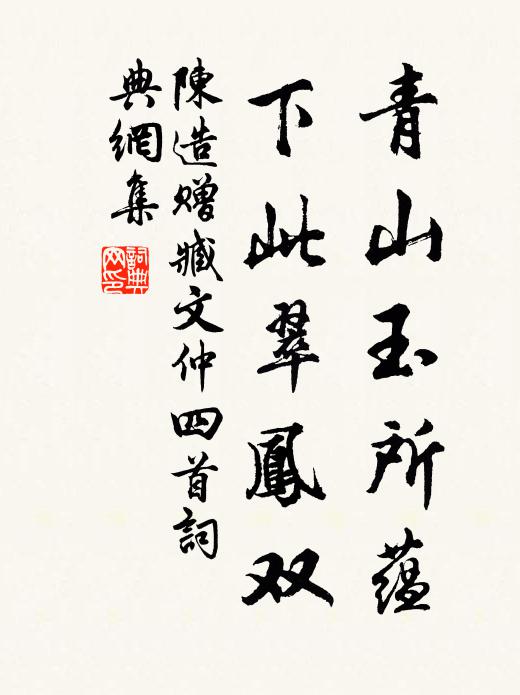 青山玉所蕴
下此翠鳳双
陳造贈臧文仲四首詞
典網集
詞典
网印